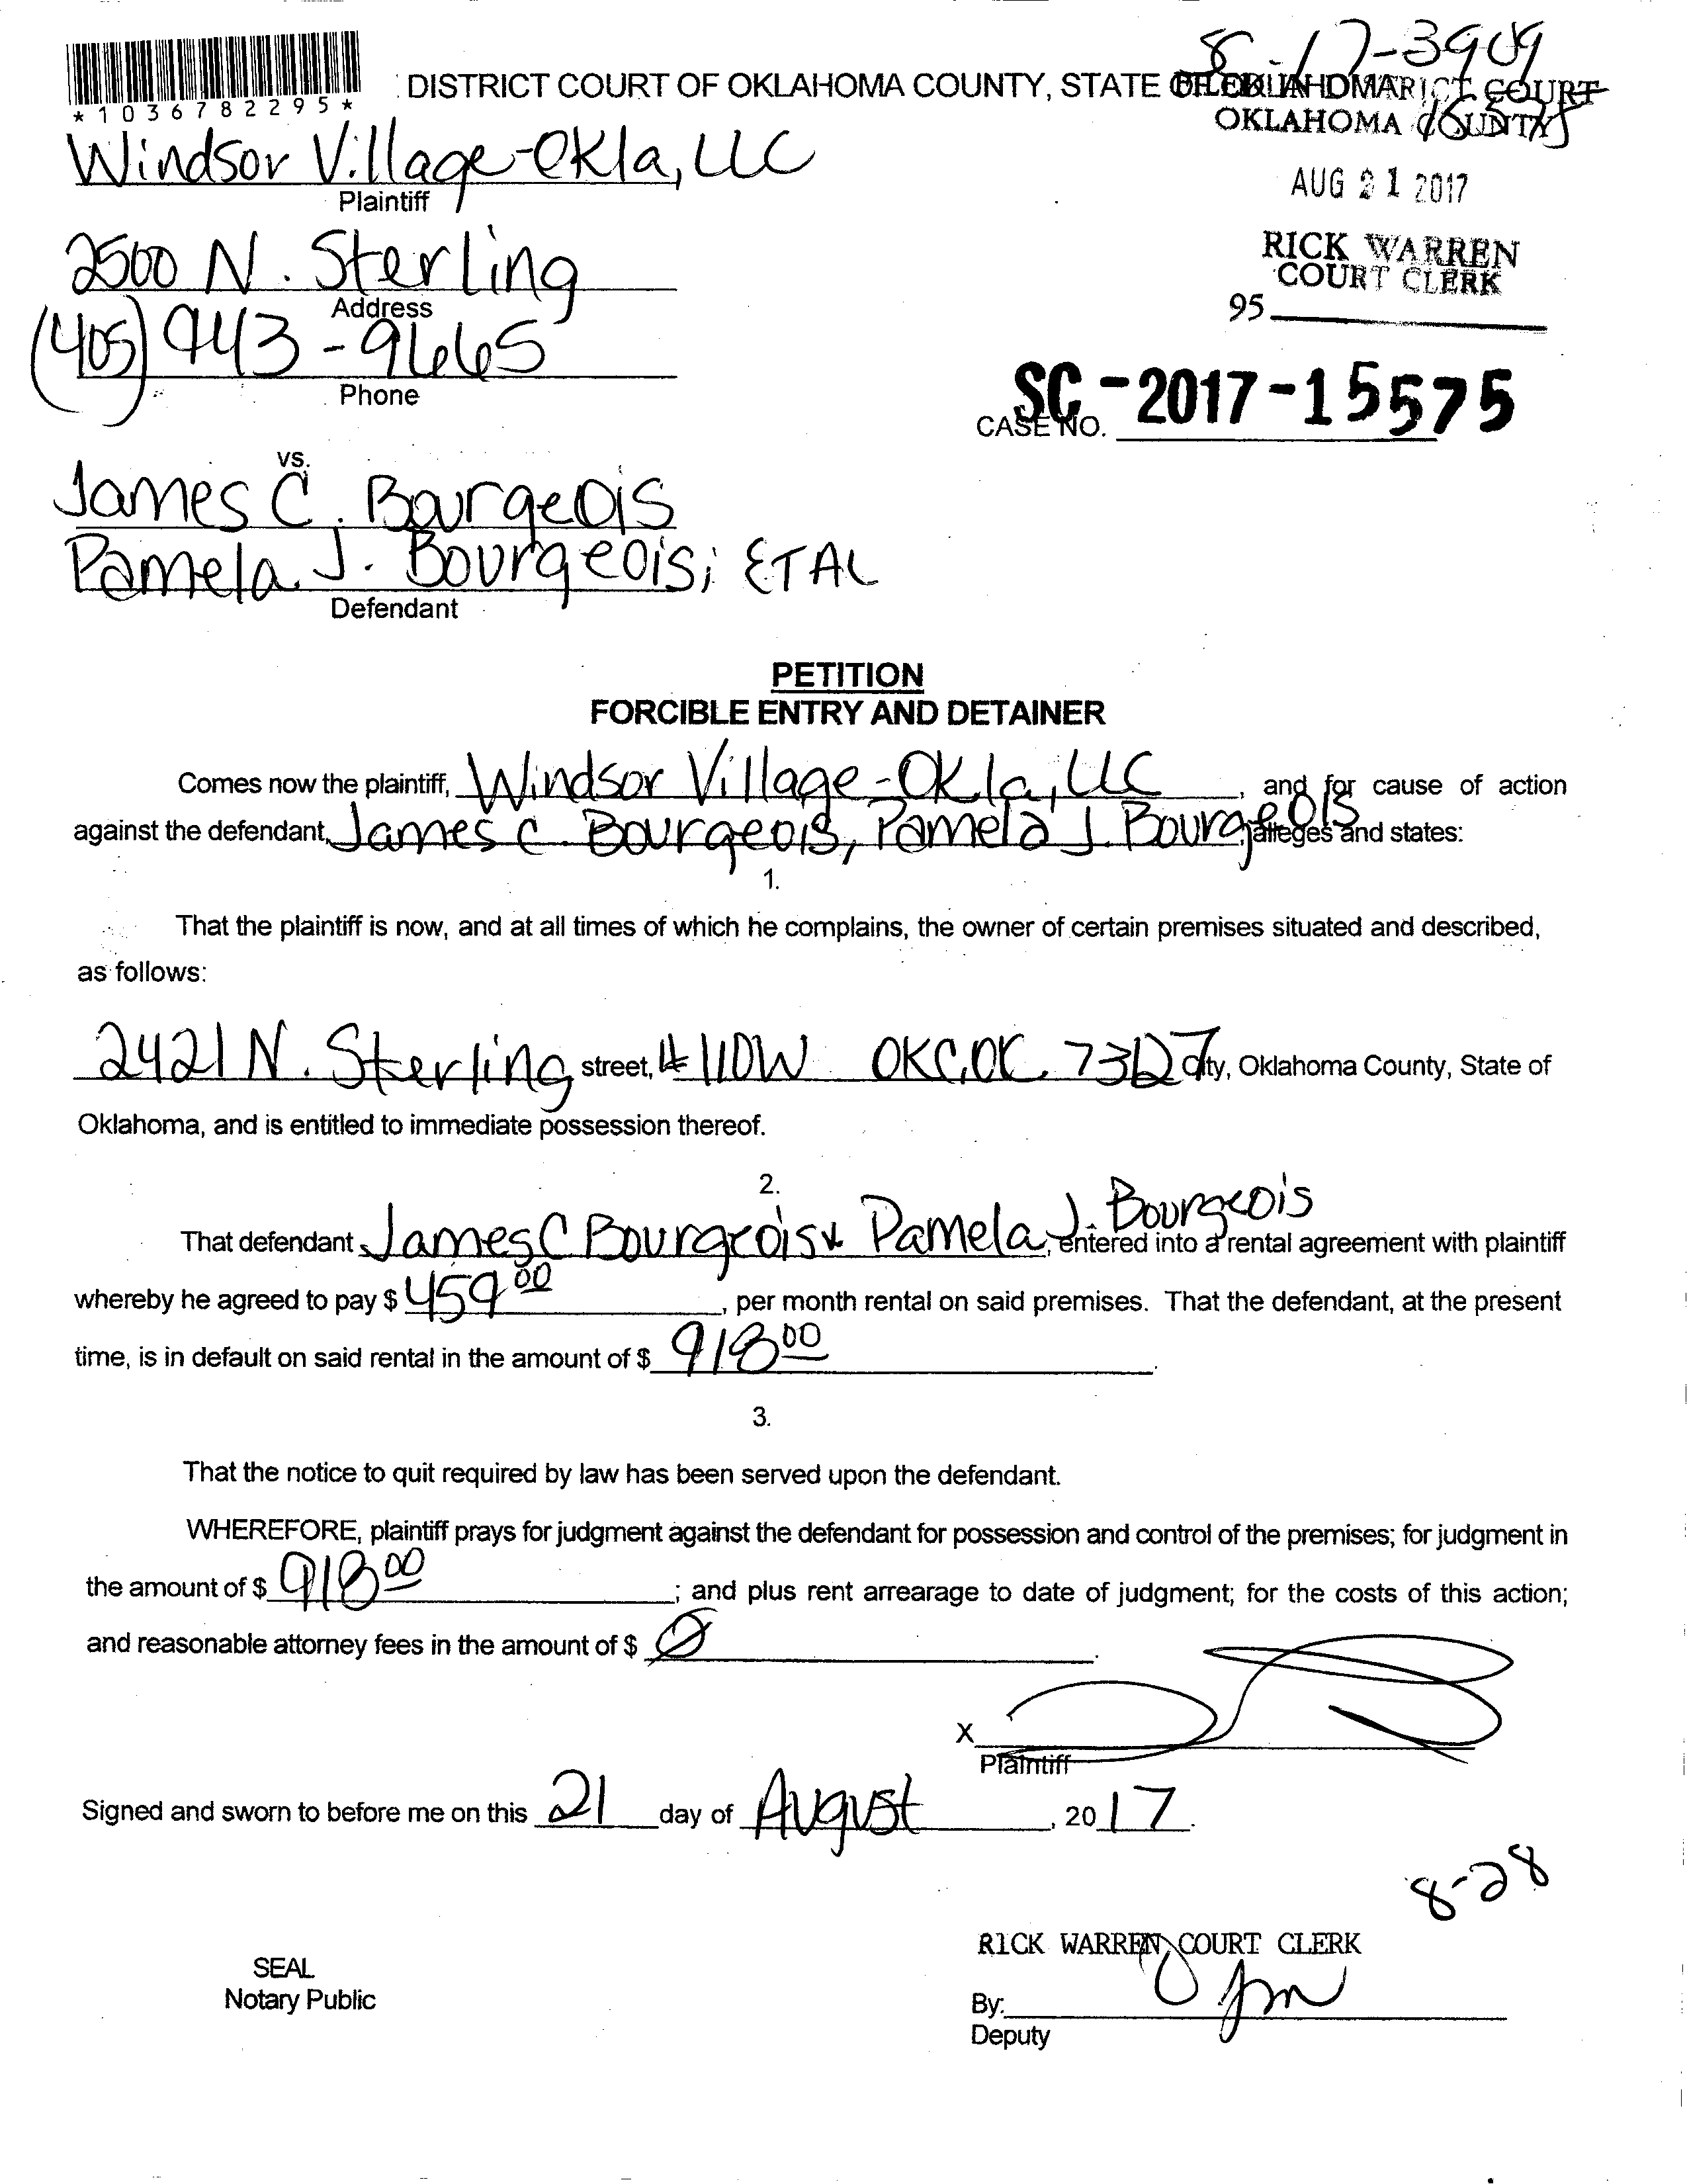 8-17-3909
DISTRICT COURT OF OKLAHOMA COUNTY, STATE OF OKLAHOMA
FILED IN DISTRICT COURT
OKLAHOMA COUNTY
15575
*1036782295*
Windsor Village-Okla, LLC
Plaintiff
AUG 21 2017
2500 N. Sterling
Address
RICK WARREN
COURT CLERK
95
(405) 943-9665
Phone
CASE NO. SC-2017-15575
vs.
James C. Bourgeois
Pamela J. Bourgeois; ETAL
Defendant
PETITION
FORCIBLE ENTRY AND DETAINER
Comes now the plaintiff, Windsor Village-Okla, LLC, and for cause of action
against the defendant, James C. Bourgeois, Pamela J. Bourgeois, alleges and states:
1.
That the plaintiff is now, and at all times of which he complains, the owner of certain premises situated and described,
as follows:
2421 N. Sterling street, # 110W OKC, OK 73127 City, Oklahoma County, State of
Oklahoma, and is entitled to immediate possession thereof.
2.
That defendant James C Bourgeois & Pamela J. Bourgeois, entered into a rental agreement with plaintiff
whereby he agreed to pay $ 459 00, per month rental on said premises. That the defendant, at the present
time, is in default on said rental in the amount of $ 918 00.
3.
That the notice to quit required by law has been served upon the defendant.
WHEREFORE, plaintiff prays for judgment against the defendant for possession and control of the premises; for judgment in
the amount of $ 918 00; and plus rent arrearage to date of judgment; for the costs of this action;
and reasonable attorney fees in the amount of $ Ø.
X
Plaintiff
Signed and sworn to before me on this 21 day of August, 2017.
8-28
RICK WARREN, COURT CLERK
SEAL
Notary Public
By:
Deputy